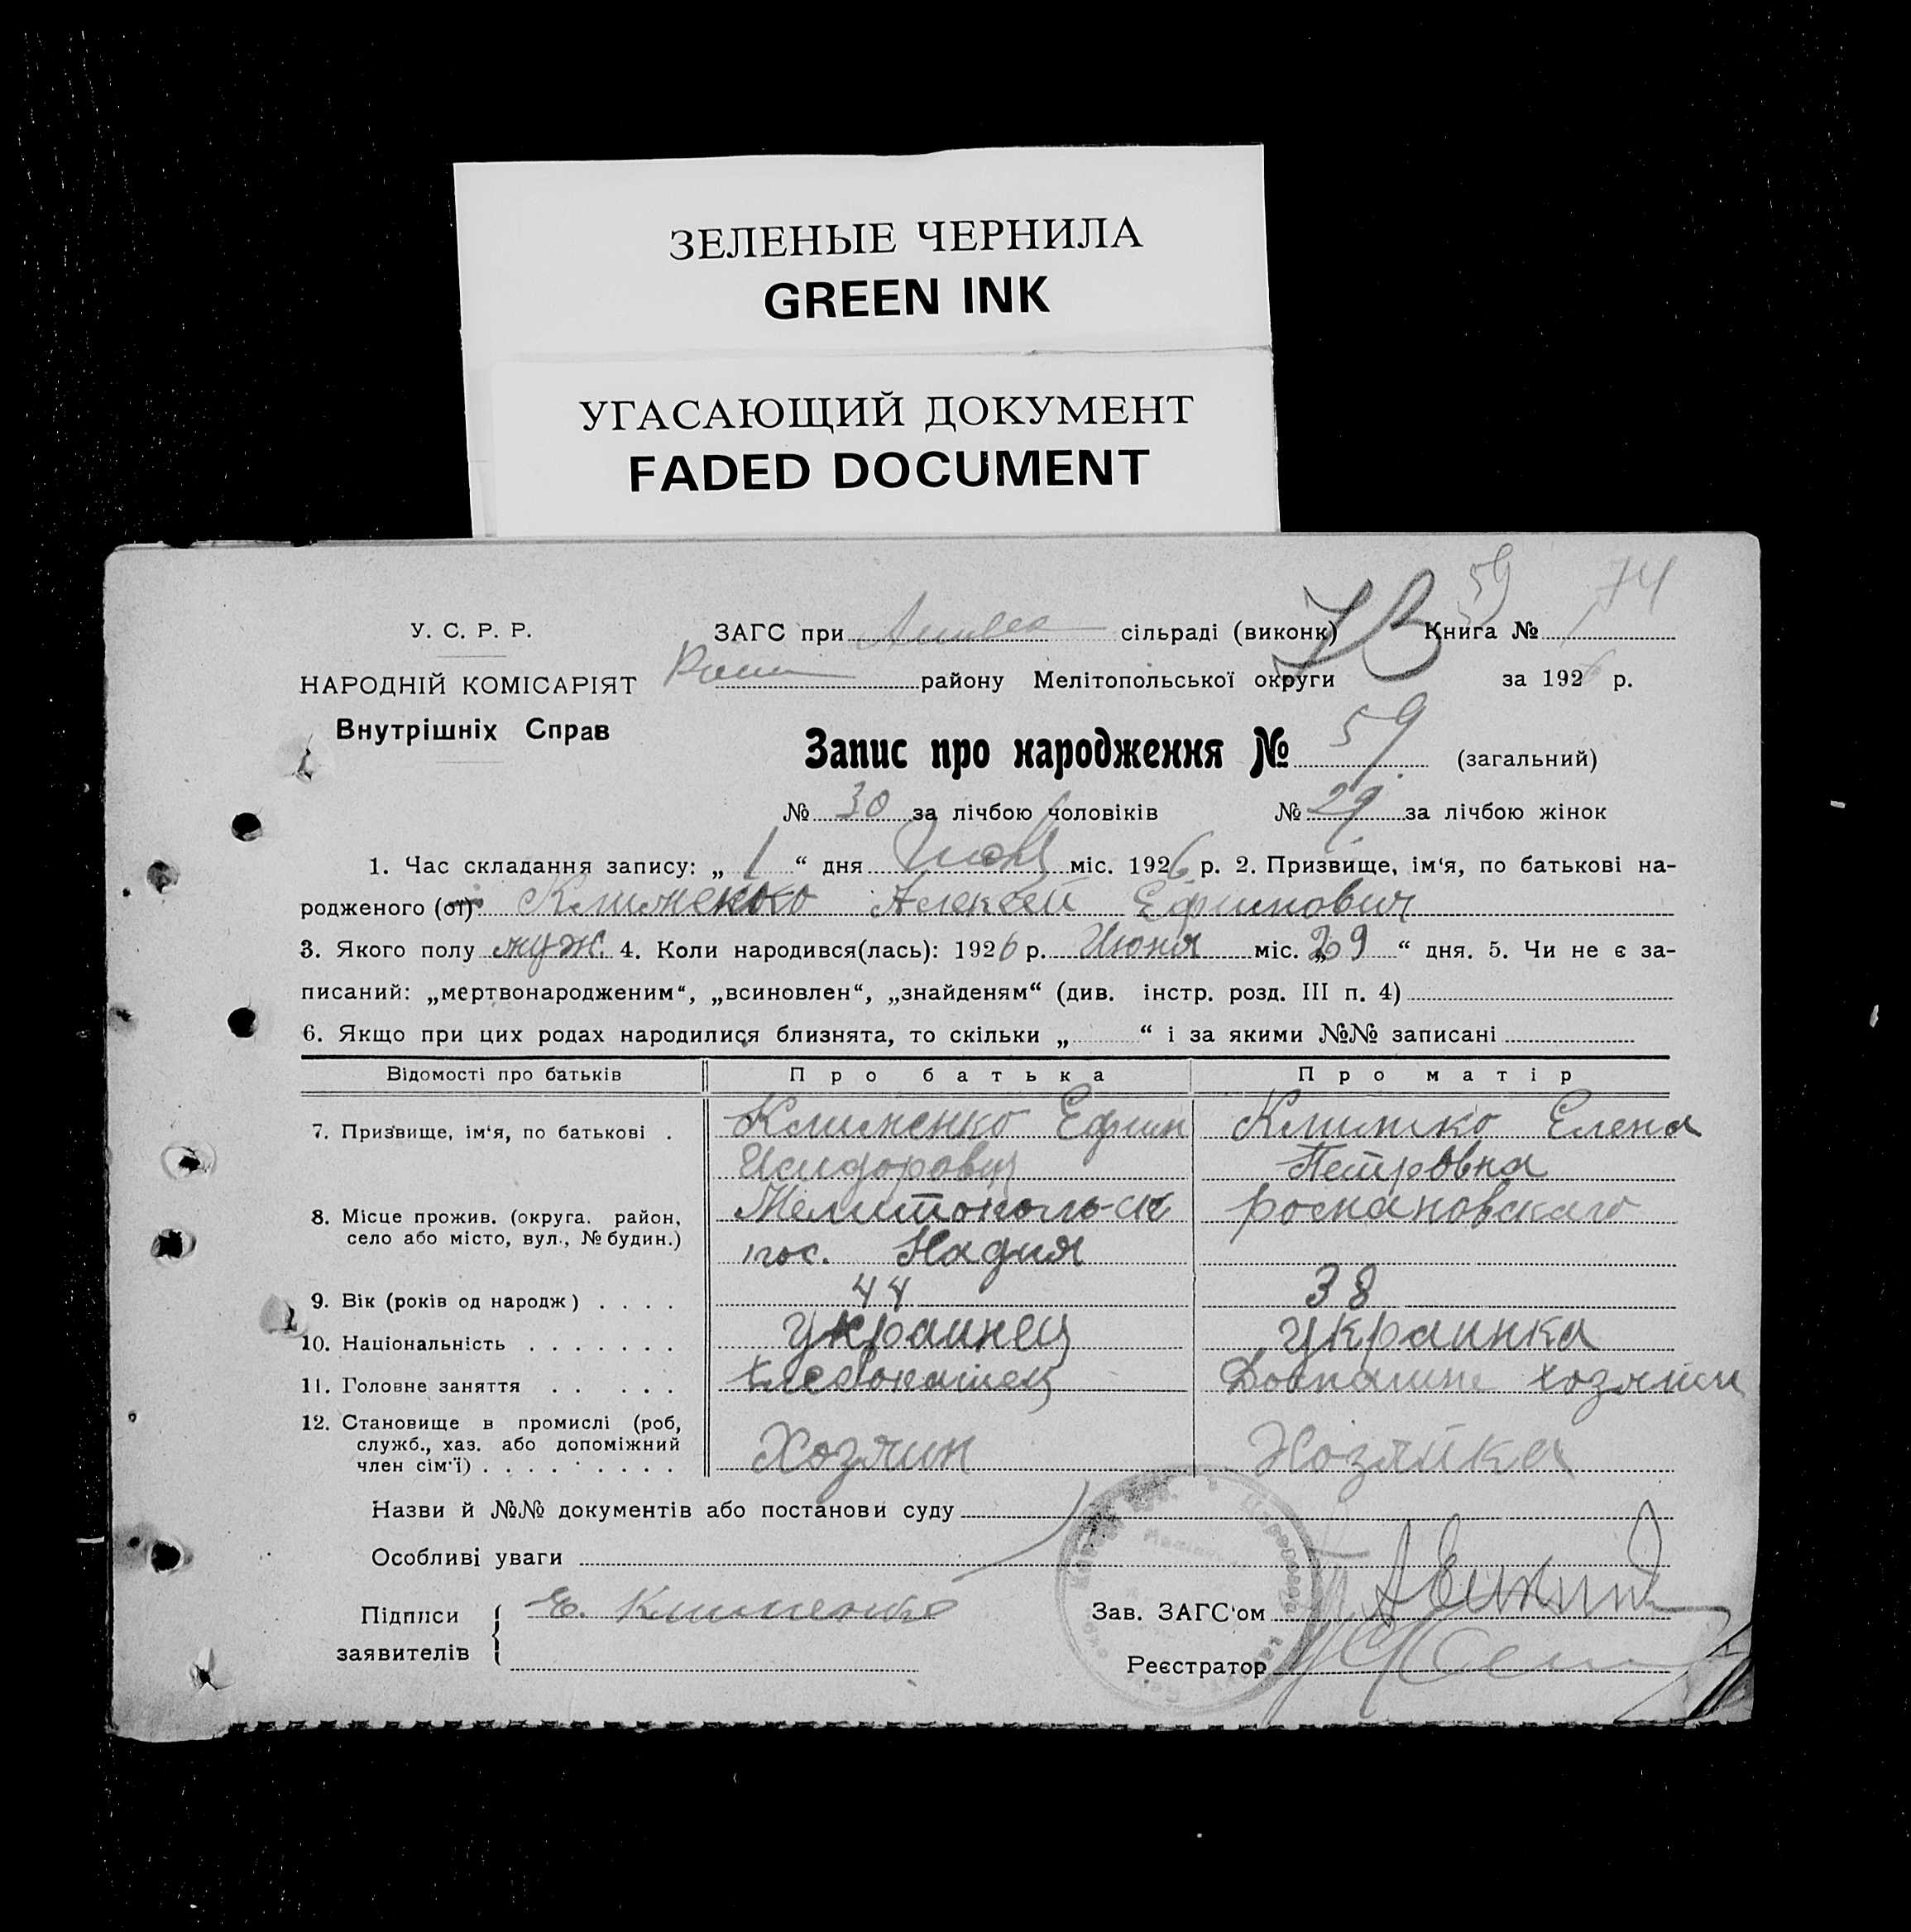 ЗЕЛЕНЫЕ ЧЕРНИЛА
GREEN INK
УГАСАЮЩИЙ ДОКУМЕНТ
FADED DOCUMENT
59 74
У. С. Р. Р. ЗАГС при сільраді (виконк) Книга №
НАРОДНІЙ КОМІСАРІЯТ району Мелітопольської округи за 1926 р.
Внутрішніх Справ
Запис про народження № 59 (загальний)
№ 30 за лічбою чоловіків № 29 за лічбою жінок
1. Час складання запису: „ 1 “ дня міс. 1926 р. 2. Призвище, ім‘я, по батькові на-
родженого (ої) Клименко Алексей Ефимович
3. Якого полу муж. 4. Коли народився(лась): 1926 р. Июня міс. „29 “ дня. 5. Чи не є за-
писаний: „мертвонародженим“, „всиновлен“, „знайденям“ (див. інстр. розд. III п. 4)
6. Якщо при цих родах народилися близнята, то скільки „ “ і за якими №№ записані
Відомості про батьків Про батька Про матір
7. Призвище, ім‘я, по батькові . Клименко Ефим Елена
Исидорович Петровна
8. Місце прожив. (округа, район, Мелитополь-ск романовскаго
село або місто, вул., № будин.) пос. Надия
9. Вік (років од народж) . . . . 44 38
10. Національність . . . . . . . украинец украинка
11. Головне заняття . . . . . хлебопашец Домашне хозяйн
12. Становище в промислі (роб,
служб., хаз. або допоміжний Хозяин Хозяйка
член сім‘ї) . . . . . . . . .
Назви й №№ документів або постанови суду
Особливі уваги
Підписи Е. Клименко Зав. ЗАГС‘ом
заявителів Реєстратор